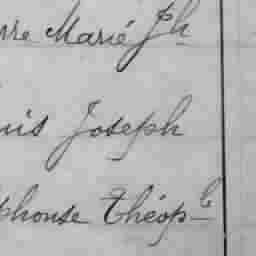 rre Marie Jh
uis Joseph
phonse Théop le